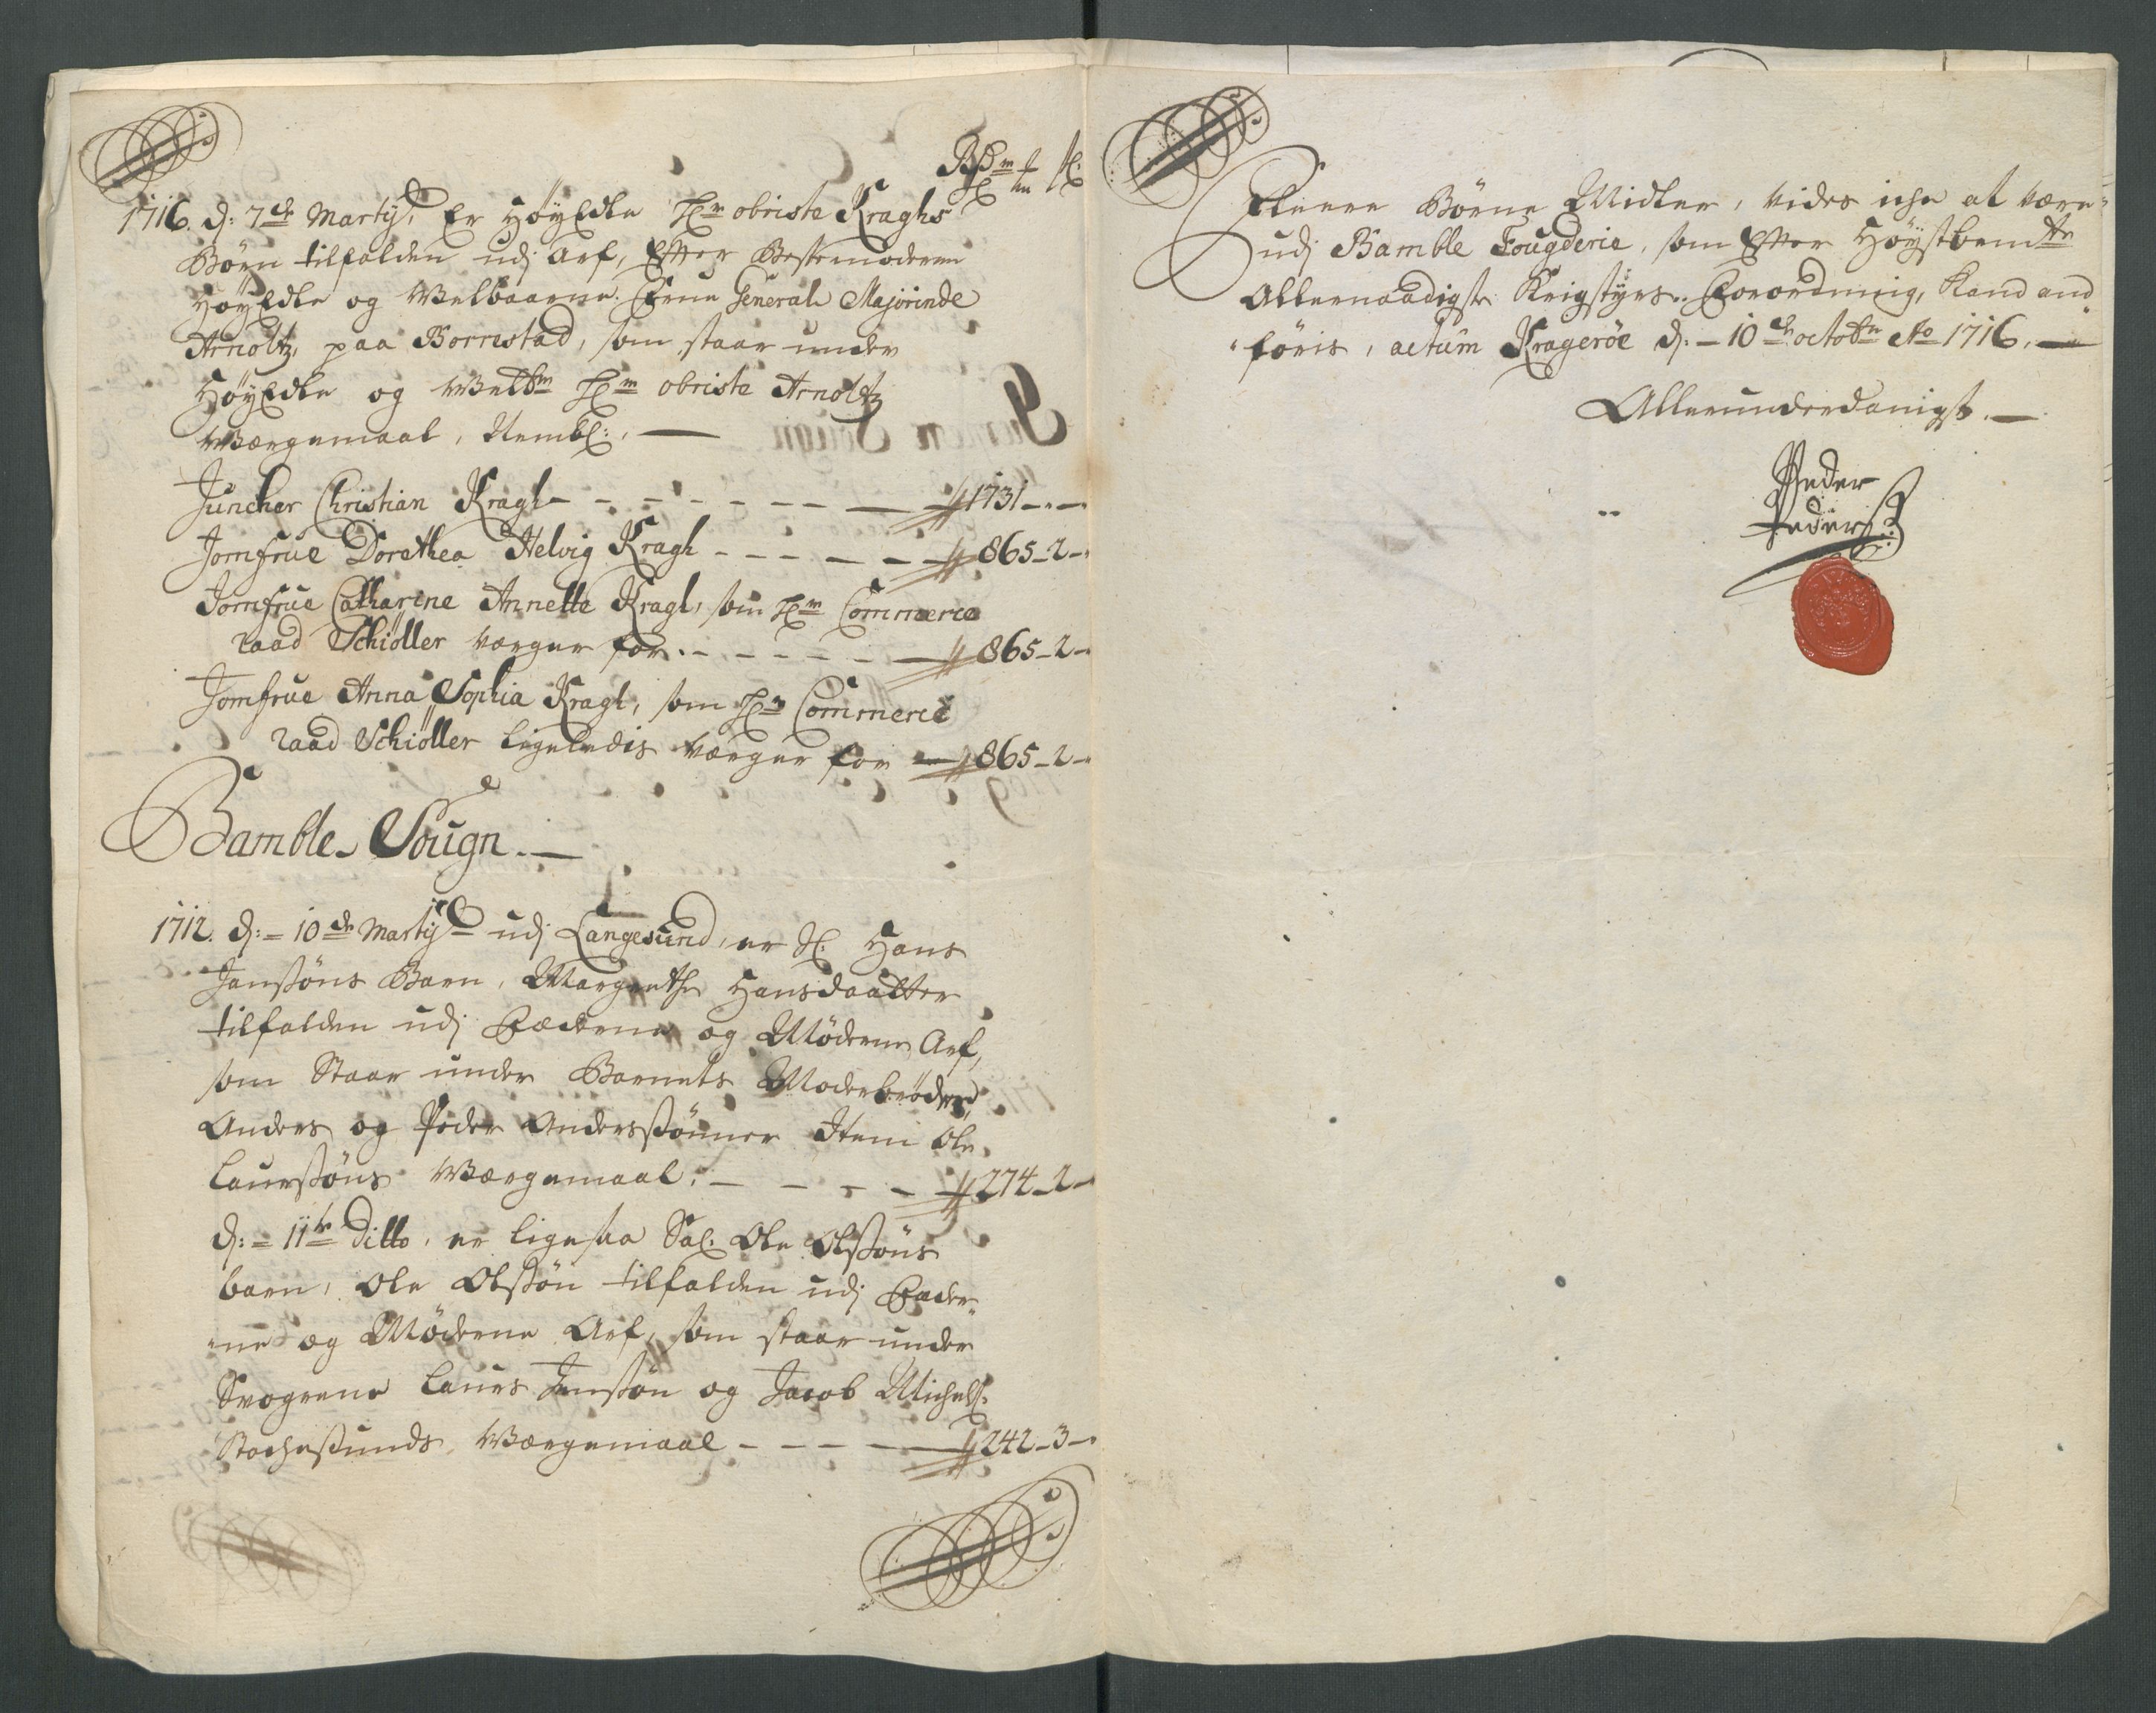 1716. d: 7de Martÿ, Er HøyEdle Hr obriste Kraghs
Børn tilfalden udj Arf, Efter Bestemoderen
HøyEdle og Welbaarne Frue General Majorinde
Arnoltz, paa Borrestad, som staar under
HøyEdle og Welbn Hr obriste Arnoltz
Wærgemaal, Nembl:
Juncher Christian Kragh 1731
Jomfrue Dorethea Helvig Kragh 865-2-
Jomfrue Catharine Annette Kragh, som Hr Commerce
raad Schiøller værger for 865-2-
Jomfrue Anna Sophia Kragh, som Hr Commerce
raad Schiøller ligeledis værger for 865-2-
Bamble Sougn.
1712. d: 10de Martÿ udj Langesund, er Sl. Hans
Janssøns Barn, Margrethe Hansdaatter
tilfalden udj Fæderne og Møderne Arf,
som Staar under Barnets Moderbrødre,
Anders og Peder Anderssønner Item Ole
Laurssøns Wærgemaal. 274-2-
d: 11te Ditto, er ligesaa Sal. Ole Olssøns
barn, Ole Olssøn tilfalden udj Fæder-
ne og Møderne Arf, som staar under
Svogrene Laurs Jenssøn og Jacob Michels:
Stochesunds, Wærgemaal 242-3-
Fleere Børne Midler, vides iche at være
udj Bamble Fougderie, som Efter Høystbemte
Allernaadigste Krigstyrs Forordning, kand and
føris, actum Kragerøe d: 10de octobr Ao 1716.
Allerunderdanigst.
Peder
Peders